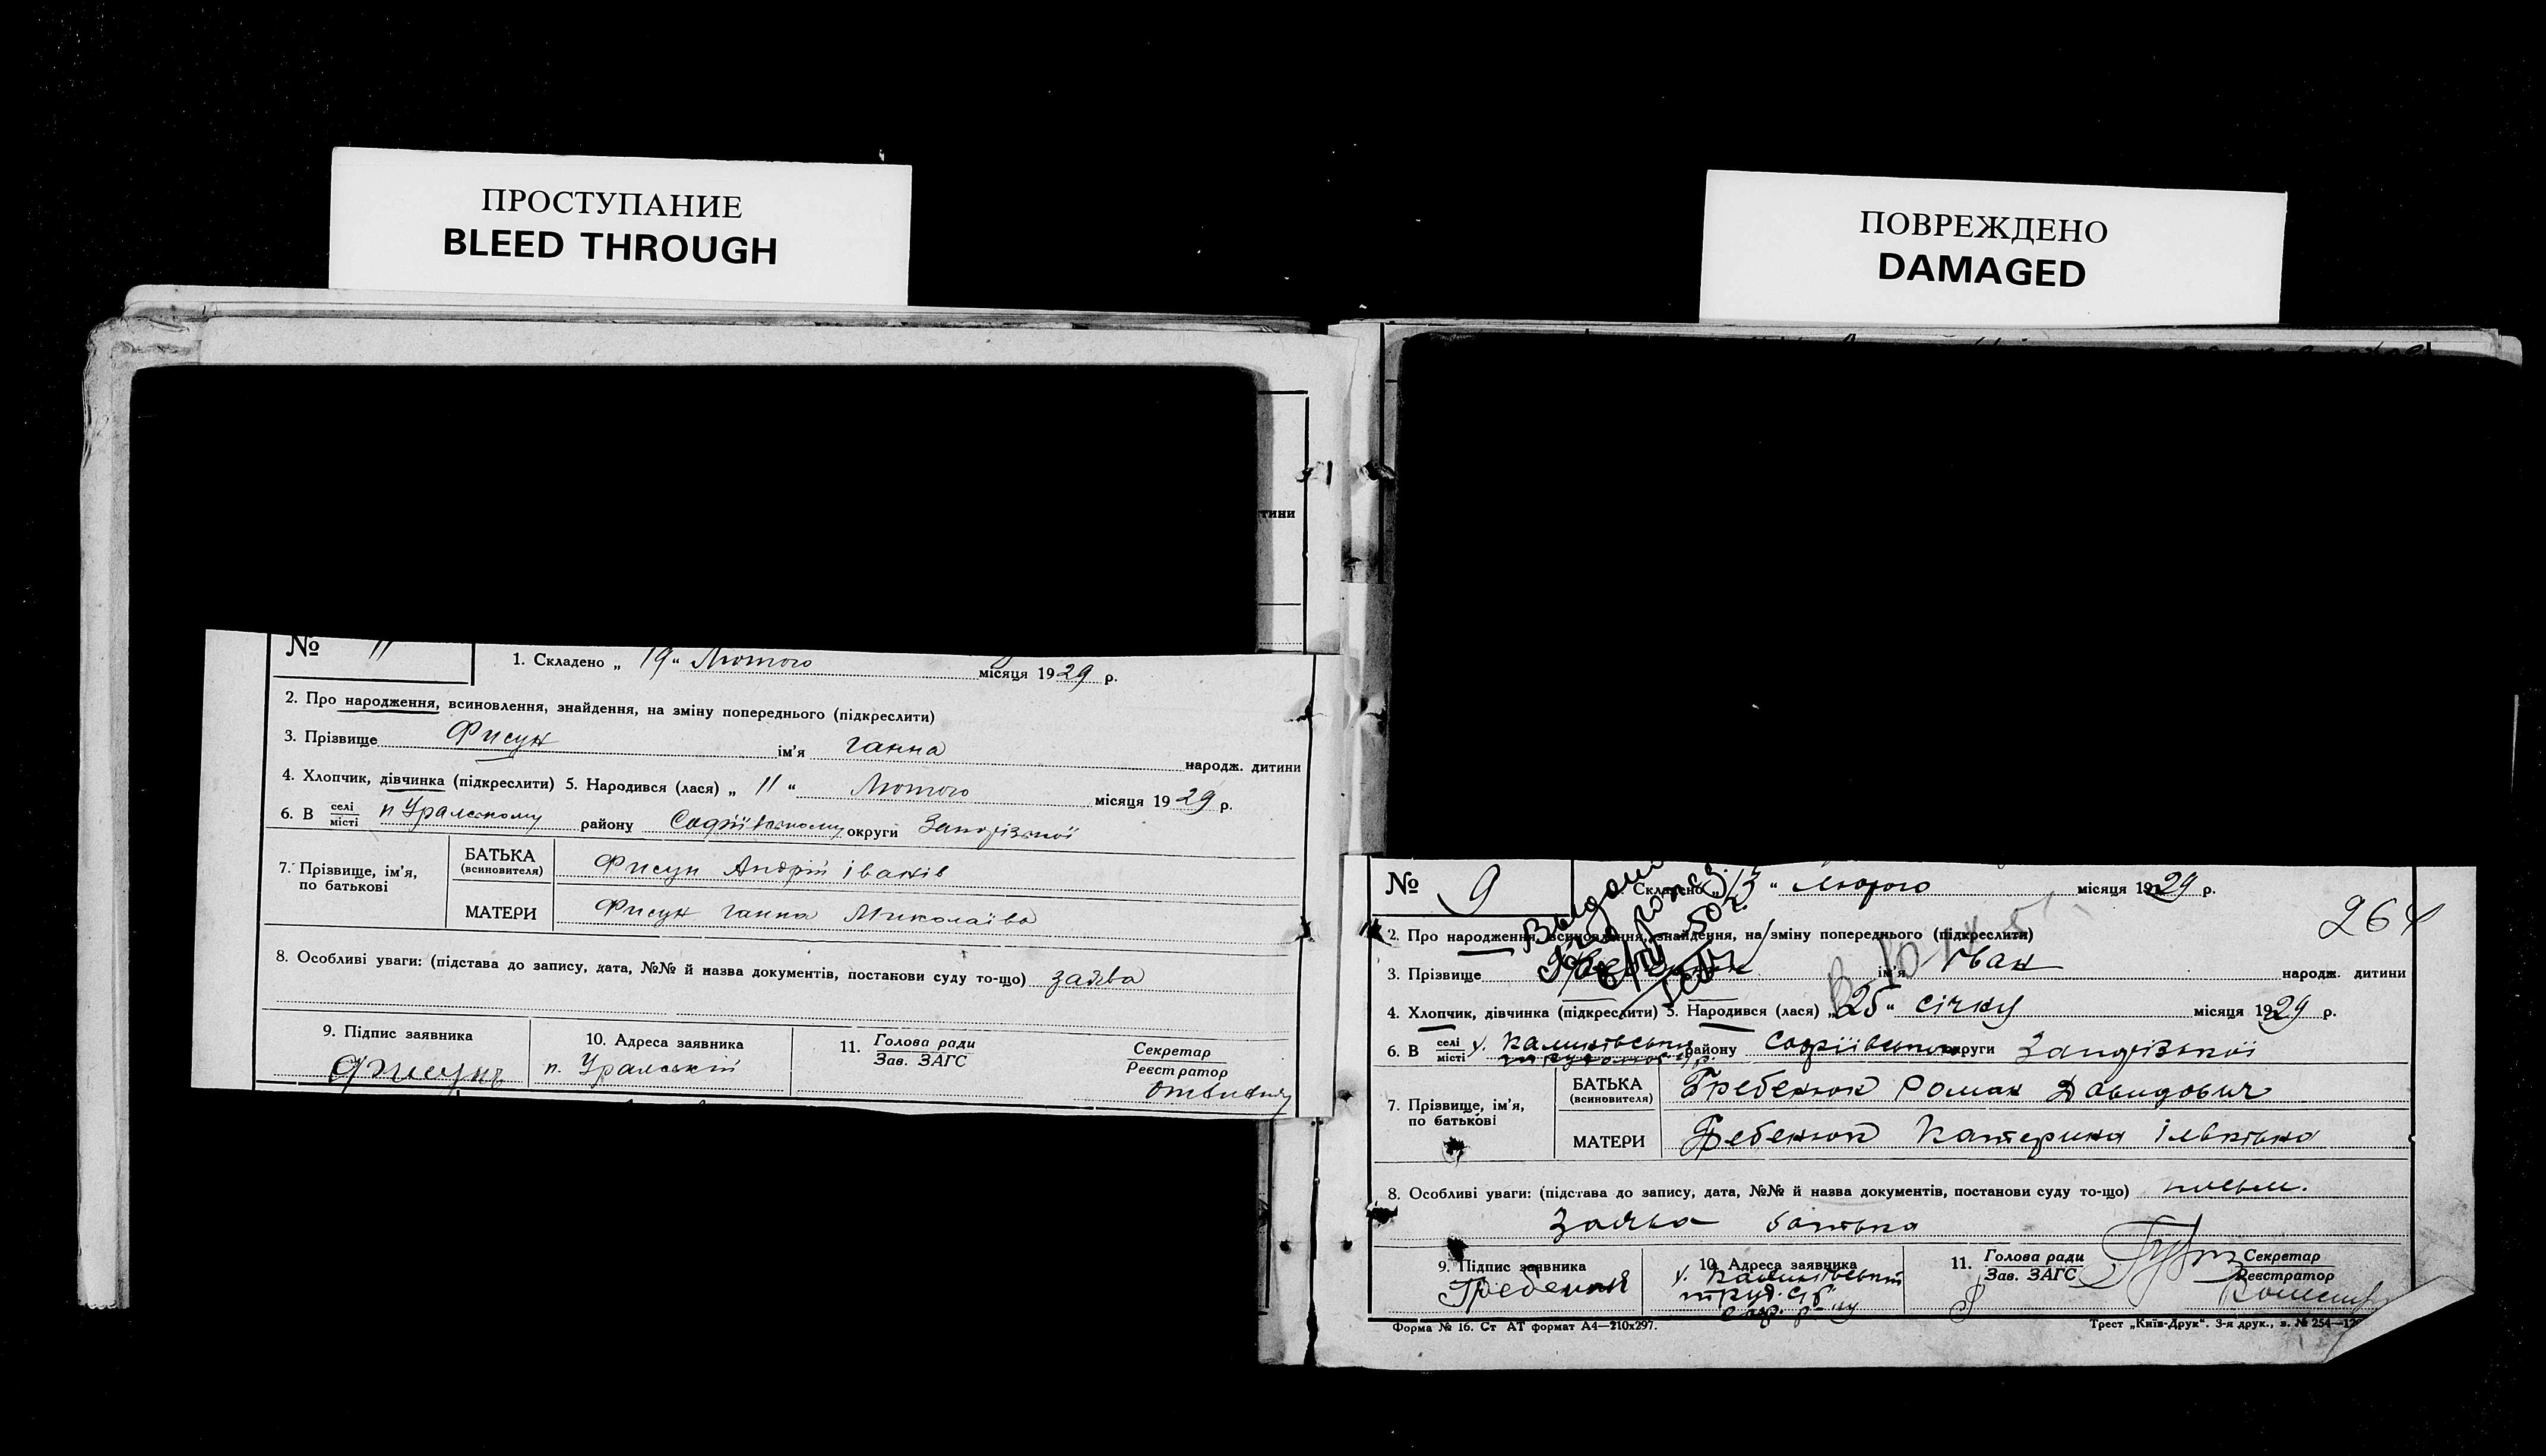 ПРОСТУПАНИЕ
BLEED THROUGH
ПОВРЕЖДЕНО
DAMAGED
тини
№ 11
1. Складено „ 19 “ Лютого місяця 1929 р.
2. Про народження, всиновлення, знайдення, на зміну попереднього (підкреслити)
3. Прізвище Фисун ім'я Ганна народж. дитини
4. Хлопчик, дівчинка (підкреслити) 5. Народився (лася) „ 11 “ Лютого місяця 1929 р.
6. В селі місті п Уральському району Софіївському округи Запорізької
7. Прізвище, ім'я, по батькові
БАТЬКА (всиновителя) Фисун Андрій Іванів
МАТЕРИ Фисун Ганна Миколаїва
8. Особливі уваги: (підстава до запису, дата, №№ й назва документів, постанови суду то-що) заява
9. Підпис заявника
Фисунъ
10. Адреса заявника
п. Уральский
11. Голова ради
Зав. ЗАГС
Секретар
Реєстратор
№ 9
Складено „ 13 “ Лютого місяця 1929 р.
264
2. Про народження, всиновлення, знайдення, на зміну попереднього (підкреслити)
3. Прізвище Гребенюк ім'я Іван народж. дитини
4. Хлопчик, дівчинка (підкреслити) 5. Народився (лася) „ 25 “ січня місяця 1929 р.
6. В селі місті х. Калинівський району Софіївського округи Запорізької
7. Прізвище, ім'я, по батькові
БАТЬКА (всиновителя) Гребенюк Роман Давидович
МАТЕРИ Гребенюк Катерина Ільківна
8. Особливі уваги: (підстава до запису, дата, №№ й назва документів, постанови суду то-що) письм.
Заява батька
9. Підпис заявника
Гребенюк
10. Адреса заявника
х. Калинівський
11. Голова ради
Зав. ЗАГС
Секретар
Реєстратор
Форма № 16. Ст АТ формат А4—210х297.
Трест „Київ-Друк“. 3-я друк., з. № 254—12